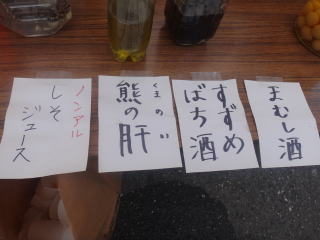 ノンアル
しそ
ジュース
くまのい
熊の肝
すずめ
ばち酒
まむし酒